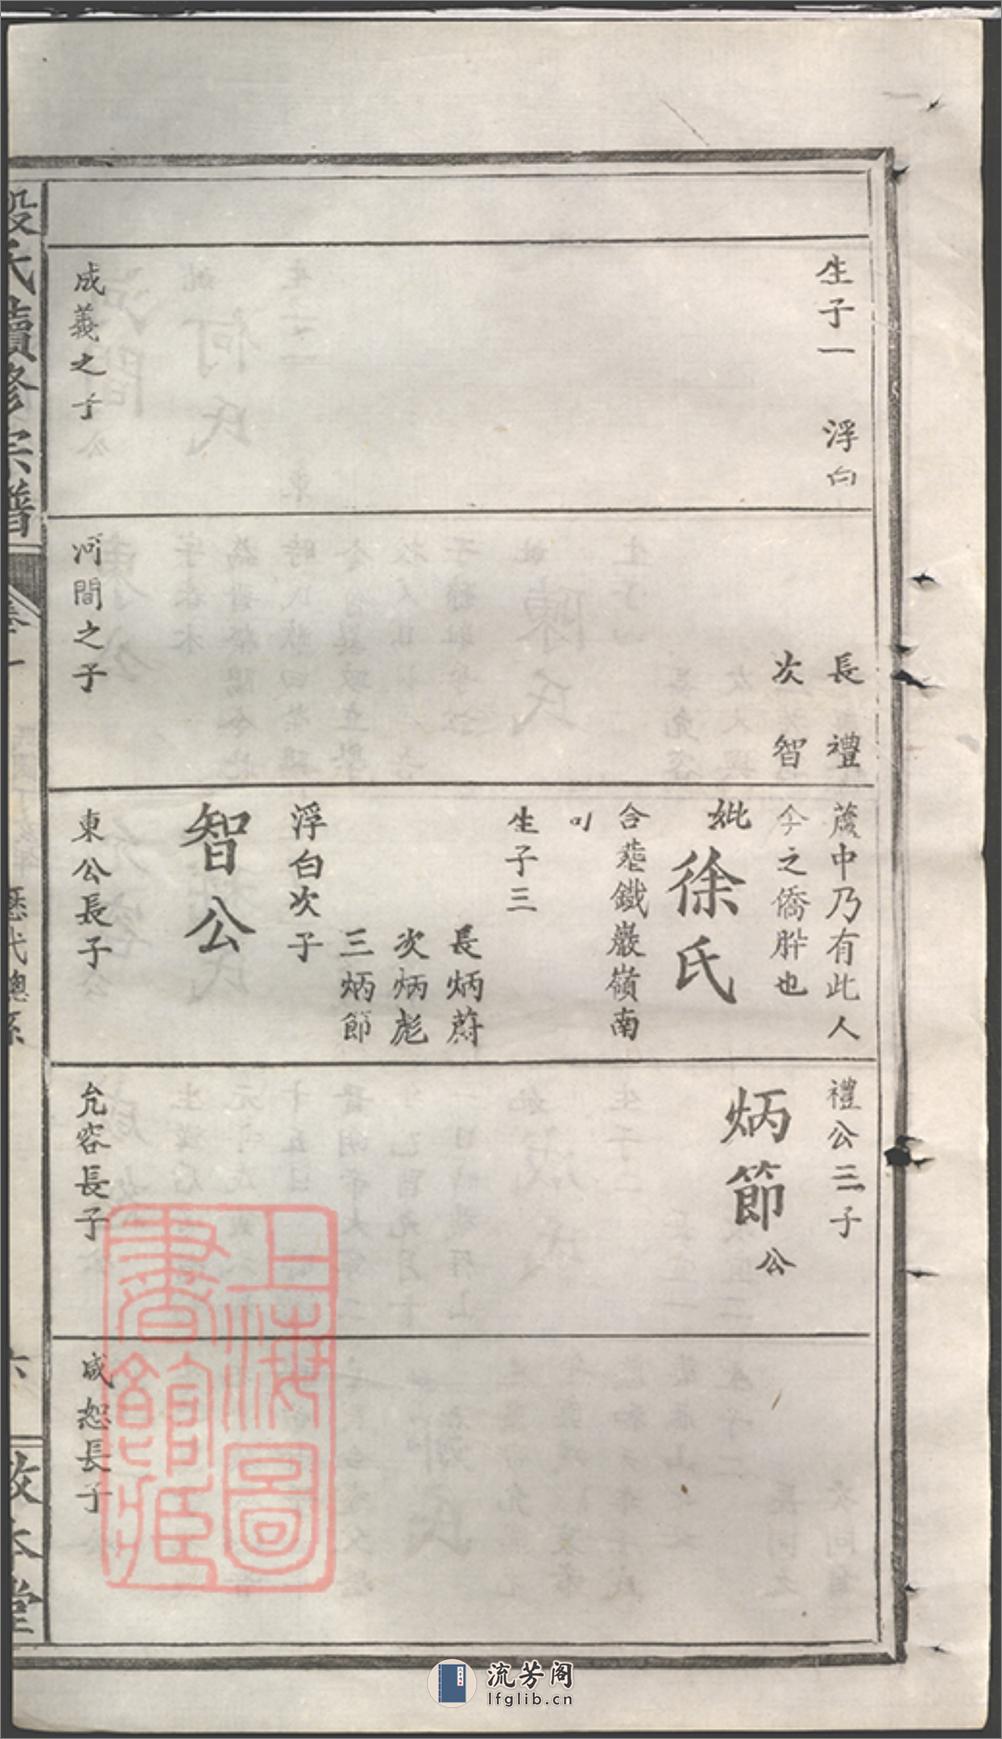 生子一 浮白
成義之子
長禮
次智
河間之子
中乃有此人
今之僑肸也
妣徐氏
合葬鐵巖嶺南
生子三
長炳蔚
次炳彪
三炳節
浮白次子
智公
東公長子
禮公三子
炳節公
允容長子
咸恕長子
段氏續修宗譜
卷一
歷代總系
六
敦本堂
上海圖
書館藏
流芳阁
lfglib.cn